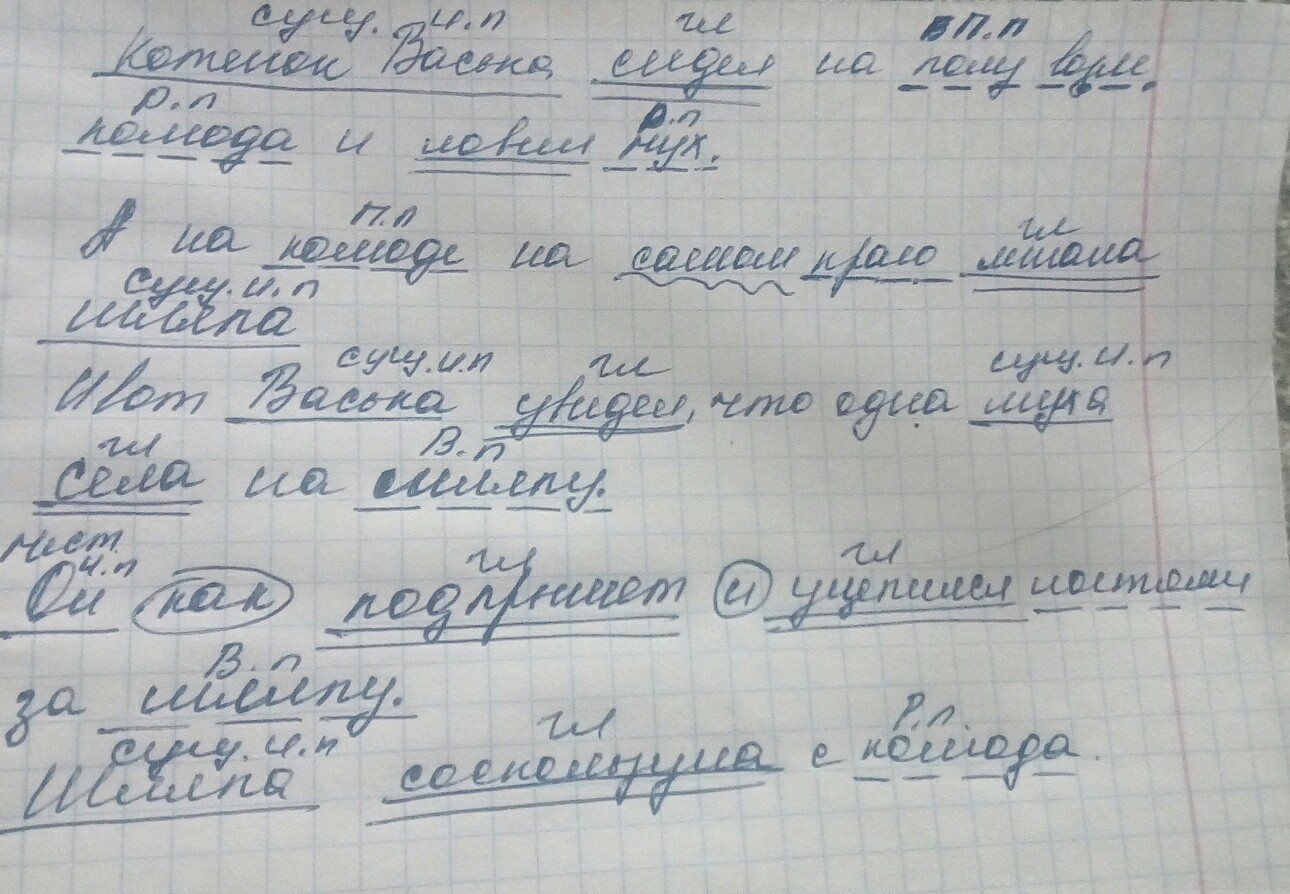 сущ. и.п гл п.п
Котенок Васька сидел на полу возле
р.п р.п
комода и ловил мух.
п.п гл
А на комоде на самом краю лежала
сущ. и.п
шляпа
сущ. и.п гл сущ. и.п
И вот Васька увидел, что одна муха
гл В.п
села на шляпу.
мест. и.п гл гл
Он как подпрыгнет и уцепился когтями
В.п
за шляпу.
сущ. и.п гл Р.п.
Шляпа соскользнула с комода.